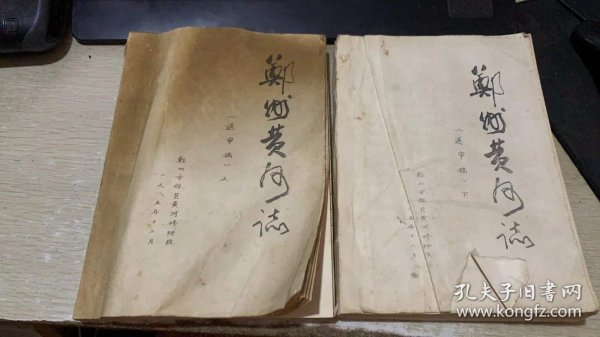 鄭州黄河誌
（送审稿）上
郑州市郊区黄河修防段
一九八五年十二月
鄭州黄河誌
（送审稿）下
郑州市郊区黄河修防段
孔夫子旧书网
www.kongfz.com